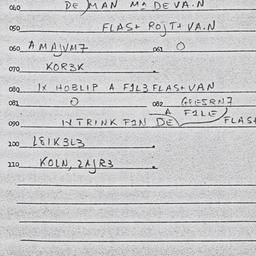 040 DE MAN Mᵒ DE VA.N
050 FLASH ROJT+VA.N
060 A MAJVM7 061 O
070 KOR3K
080 IX HOBLIP A F1L3 FLASHVAN
081 O 082 GEESRN7
A F1LE
090 IXTRINK F2N DE FLAS
100 LEIK3L3
110 KOLN, 2AJR3